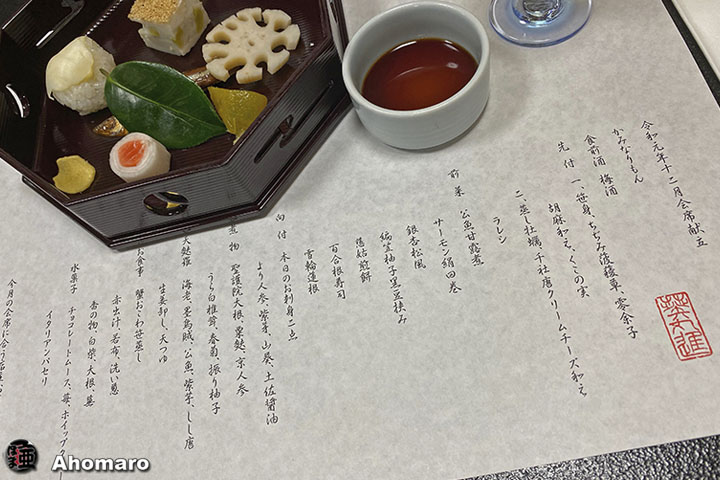 令和元年十二月会席献立
かみなりもん
食前酒 梅酒
先付 一、笹身、ちぢみ菠薐草、零余子
胡麻和え、くこの実
二、蒸し牡蠣、千社唐クリームチーズ和え
ラレシ
前菜 公魚甘露煮
サーモン絹田巻
銀杏松風
編笠柚子黒豆挟み
慈姑煎餅
百合根寿司
雪輪蓮根
向付 本日のお刺身二点
より人参、紫芽、山葵、土佐醤油
煮物 聖護院大根、粟麩、京人参
うら白椎茸、春菊、振り柚子
天麩羅 海老、墨烏賊、公魚、紫芋、しし唐
生姜卸し、天つゆ
お食事 蟹おこわ笹蒸し
赤出汁、若布、洗い葱
香の物、白菜、大根
水菓子 チョコレートムース、苺、ホイップク
イタリアンパセリ
今月の会席に合う
Ahomaro